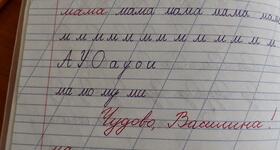 мама мама мама мама мам
м м м м м м м м м м м м м
А У О а у о и
ма мо му ми
Чудово, Василина!